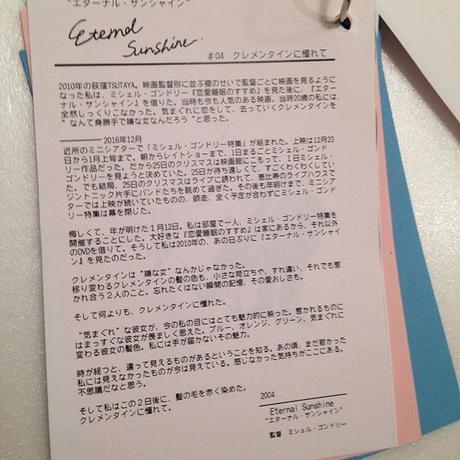 "エターナル・サンシャイン"
Eternal
Sunshine.
#04 クレメンタインに憧れて
2010年の荻窪TSUTAYA。映画監督別に並ぶ棚のせいで監督ごとに映画を見るように
なった私は、ミシェル・ゴンドリー『恋愛睡眠のすすめ』を見た後に、『エター
ナル・サンシャイン』を借りた。当時も今も人気のある映画。当時20歳の私には、
全然しっくりこなかった。気まぐれに恋をして、去っていくクレメンタインを
"なんて身勝手で嫌な女なんだろう"と思った。
2016年12月
近所のミニシアターで「ミシェル・ゴンドリー特集」が組まれた。上映は12月23
日から1月上旬まで。朝からレイトショーまで、1日まるごとミシェル・ゴンド
リー作品だった。だから25日のクリスマスは映画館にこもって、1日ミシェル・
ゴンドリーを見ようと決めていた。25日が待ち遠しくて、すごくわくわくしてい
た。でも結局、25日のクリスマスはライブに誘われて、恵比寿のライブハウスで
ジントニック片手にバンドたちを眺めて過ぎた。その後も年明けまで、ミニシア
ターでは上映が続いていたものの、師走、全く予定が合わずにミシェル・ゴンド
リー特集は幕を閉じた。
悔しくて、年が明けた1月12日。私は部屋で一人、ミシェル・ゴンドリー特集を
開催することにした。大好きな『恋愛睡眠のすすめ』は家にあるから、それ以外
のDVDを借りて。そうして私は2010年の、あの日ぶりに『エターナル・サンシャイ
ン』を見たのだった。
クレメンタインは"嫌な女"なんかじゃなかった。
移り変わるクレメンタインの髪の色も、小さな苛立ちや、すれ違い、それでも惹
かれ合う2人のこと。忘れたくはない瞬間の記憶、その愛おしさも。
そして何よりも、クレメンタインに憧れた。
"気まぐれ"な彼女が、今の私の目にはとても魅力的に映った。惹かれるものに
はまっすぐな彼女が羨ましく思えた。ブルー、オレンジ、グリーン、気まぐれに
変わる彼女の髪色。私には手が届かないその魅力。
時が経つと、違って見えるものがあるということを知る。あの頃、まだ若かった
私には見えなかったものが今は見えている。感じなかった気持ちがここにある。
不思議だなと思う。
そして私はこの2日後に、髪の毛を赤く染めた。
クレメンタインに憧れて。
2004
Eternal Sunshine
"エターナル・サンシャイン"
監督 ミシェル・ゴンドリー